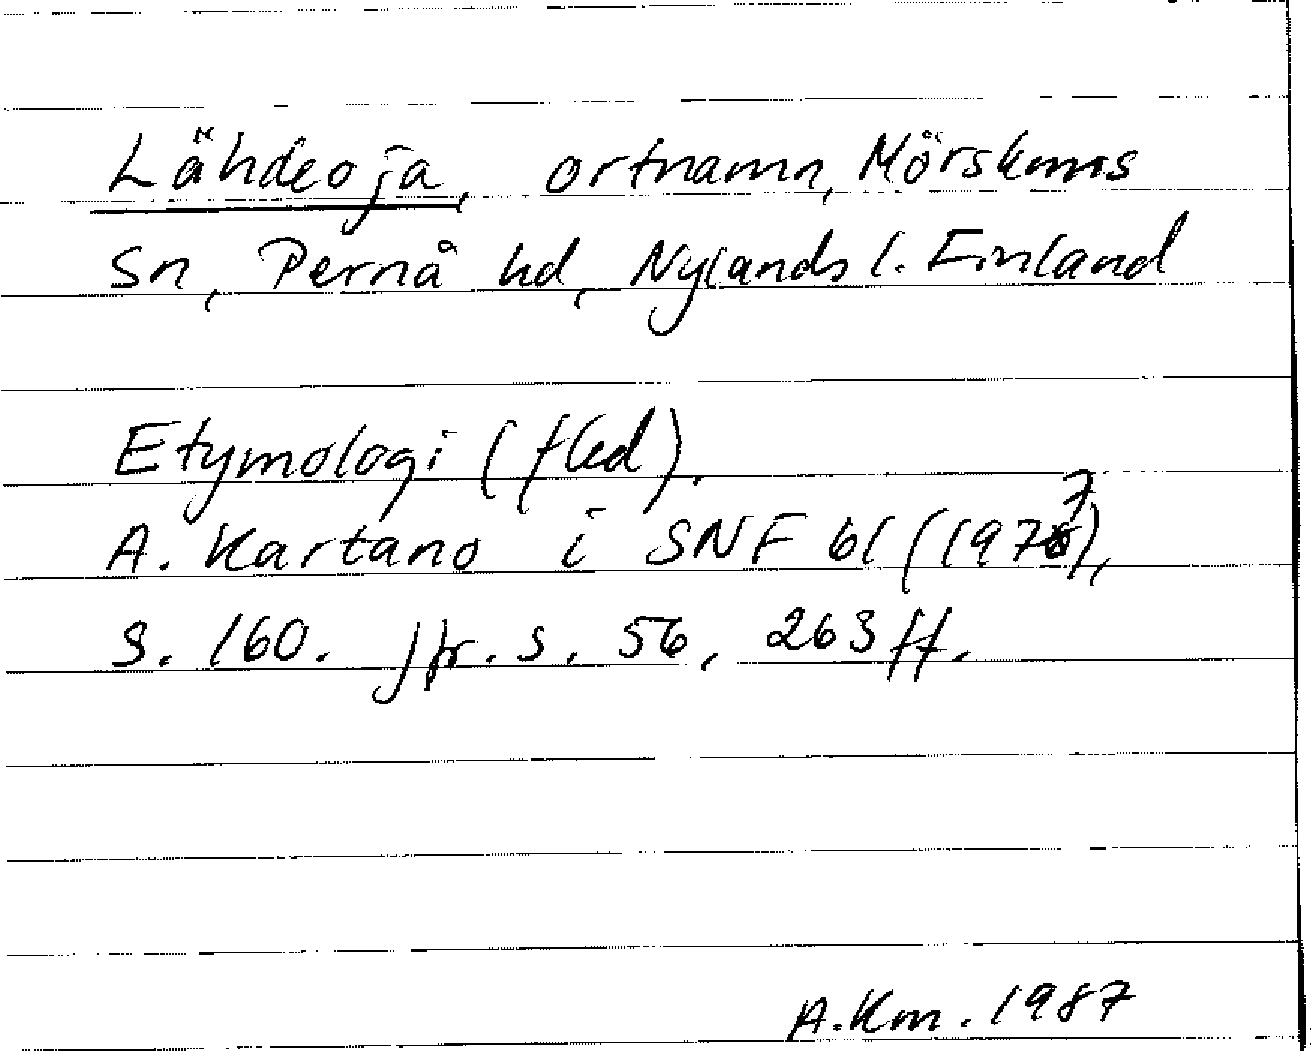 Lähdeoja, ortnamn, Mörskoms
Sn, Pernå hd, Nylands l. Finland
Etymologi (fled).
A. Kartano i SNF 61 (1977),
S. 160. Jfr. s. 56, 263 ff.
A.Km. 1987